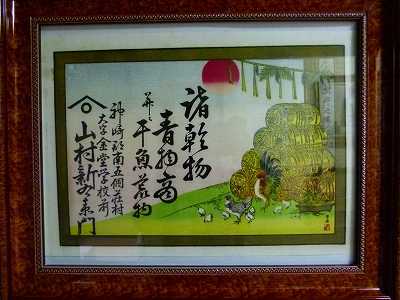 諸乾物
青物商
并ニ
干魚荒物
神崎郡南五個荘村
大字金堂学校前
山村新右衛門